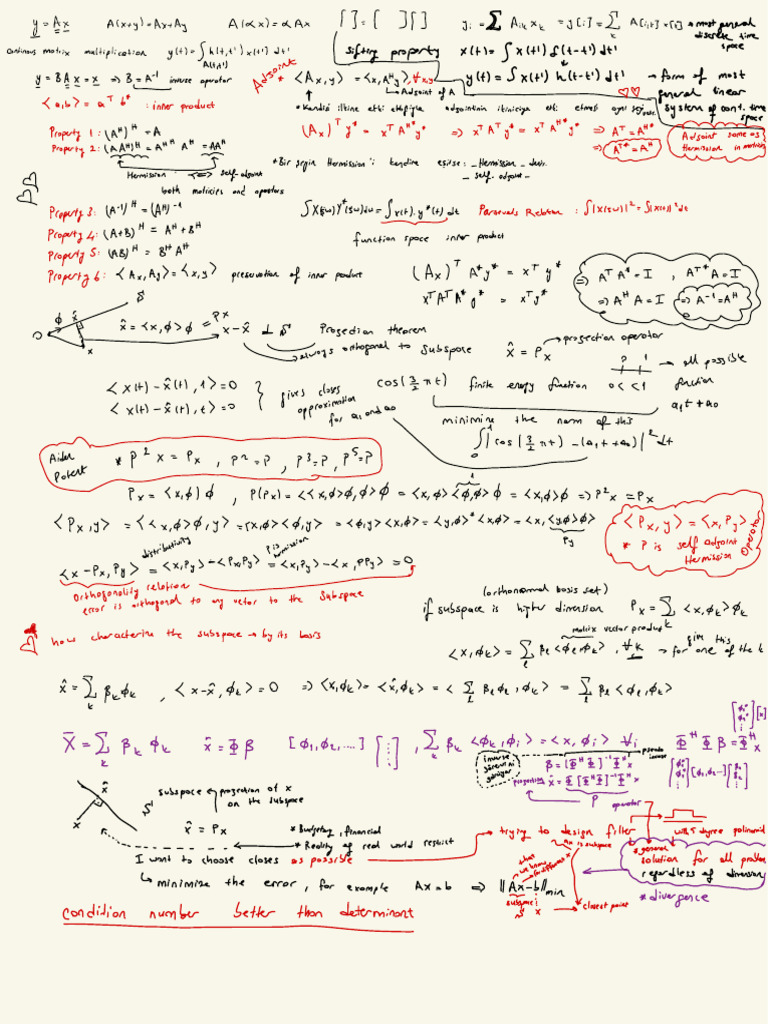 y = Ax    A(x+y) = Ax + Ay    A(αx) = αAx    [ ] = [ ][ ]    yᵢ = Σₖ Aᵢₖ xₖ = y[i] = Σₖ A[i,k] x[k] → most general discrete time space
Continuous matrix multiplication y(t) = ∫ h(t,t') x(t') dt'    sifting property    x(t) = ∫ x(t') δ(t-t') dt'
A(t,t')
y = BAx = x ⇒ B = A⁻¹ inverse operator    Adjoint * <Ax,y> = <x,Aᴴy>, ∀x,y    y(t) = ∫ x(t') h(t-t') dt' → form of most general linear system of cont. time space
→ Adjoint of A
<a,b> = aᵀ b* : inner product
Property 1: (Aᴴ)ᴴ = A    (Ax)ᵀ y* = xᵀ Aᴴ* y* ⇒ xᵀAᵀy* = xᵀAᴴ*y* ⇒ Aᵀ = Aᴴ*
⇒ Aᵀ* = Aᴴ
Adjoint same as Hermission in matrices
Property 2: (AAᴴ)ᴴ = Aᴴᴴ Aᴴ = AAᴴ
Hermission ↔ self-adjoint
both matricies and operators
* Bir şeyin Hermission': kendine eşitse: - Hermission - denir.
- self adjoint -
Property 3: (A⁻¹)ᴴ = (Aᴴ)⁻¹    ∫ X(jω) Y*(jω) dω = ∫ x(t) . y*(t) dt    Parsevals Relation : ∫ |X(jω)|² = ∫ |x(t)|² dt
Property 4: (A+B)ᴴ = Aᴴ + Bᴴ
function space inner product
Property 5: (AB)ᴴ = BᴴAᴴ
Property 6: <Ax, Ay> = <x,y> preservation of inner product    (Ax)ᵀ A*y* = xᵀ y*    ⇒ AᵀA* = I , Aᴴ*Aᵀ = I
xᵀAᵀA*y* = xᵀy*    ⇒ AᴴA = I ⇒ A⁻¹ = Aᴴ
O φ x̂ S x    x̂ = <x,φ>φ = Px    x - x̂ ⊥ S    Projection theorem
→ always orthogonal to subspace    x̂ = Px → projection operator
<x(t) - x̂(t), 1> = 0
<x(t) - x̂(t), t> = 0
gives closes approximation for a₁ and a₀
cos(3/2 πt) finite energy function 0 < < 1    0 1 → all possible function a₁t + a₀
minimize the norm of this
∫₀¹ |cos(3/2 πt) - (a₁t + a₀)|² dt
Aiden Potent * P²x = Px , Pⁿ = P , P³ = P , P⁵ = P
Px = <x,φ>φ , P(Px) = <<x,φ>φ,φ>φ = <x,φ><φ,φ>φ = <x,φ>φ ⇒ P²x = Px
1
<Px,y> = <<x,φ>φ,y> = <x,φ><φ,y> = <φ,y><x,φ> = <y,φ>*<x,φ> = <x,<y,φ>φ>
Py
<Px,y> = <x,Py>
* P is self adjoint Hermission operator
distributivity    P is hermission
<x-Px,Py> = <x,Py> - <Px,Py> = <x,Py> - <x,PPy> = 0
Orthogonality relation
error is orthogonal to any vector to the subspace
(orthonormal basis set)
if subspace is higher dimension Px = Σₖ <x,φₖ>φₖ
how characterize the subspace → by its basis
matrix vector product
<x,φₖ> = Σₗ βₗ <φₗ,φₖ>, ∀k → for one of the k
give this
x̂ = Σₖ βₖφₖ , <x-x̂,φₖ> = 0 ⇒ <x,φₖ> = <x̂,φₖ> = <Σₗ βₗφₗ,φₖ> = Σₗ βₗ <φₗ,φₖ>
X̂ = Σₖ βₖφₖ    x̂ = Φβ    [φ₁,φ₂,...] [⋮] , Σₖ βₖ <φₖ,φᵢ> = <x,φᵢ> ∀i    ΦᴴΦβ = Φᴴx
inverse    görevini görüyor    β = [ΦᴴΦ]⁻¹Φᴴx    pseudo inverse
projection x̂ = Φ[ΦᴴΦ]⁻¹Φᴴx
P
operator
x̂ S x    subspace projection of x on the subspace
x̂ = Px
* Budgeting, financial
* Reality of real world restrict
→ trying to design filter    with 5 degree polinomial
I want to choose closes as possible
Ax is subspace
that we know    for different x
↳ minimize the error , for example Ax = b ⇒ ||Ax-b||min
subspace    S x → closest point
* general solution for all problem regardless of dimension
* divergence
condition number better than determinant